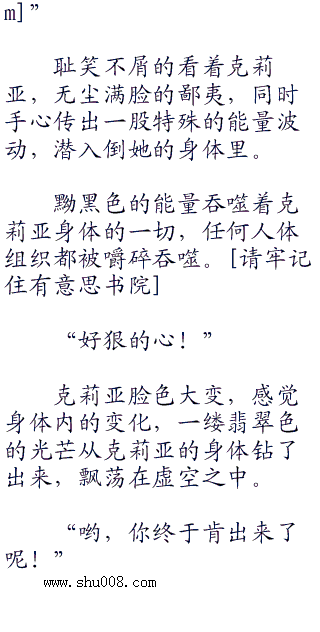 m]”
耻笑不屑的看着克莉
亚，无尘满脸的鄙夷，同时
手心传出一股特殊的能量波
动，潜入倒她的身体里。
黝黑色的能量吞噬着克
莉亚身体的一切，任何人体
组织都被嚼碎吞噬。[请牢记
住有意思书院]
“好狠的心！”
克莉亚脸色大变，感觉
身体内的变化，一缕翡翠色
的光芒从克莉亚的身体钻了
出来，飘荡在虚空之中。
“哟，你终于肯出来了
呢！”
www.shu008.com